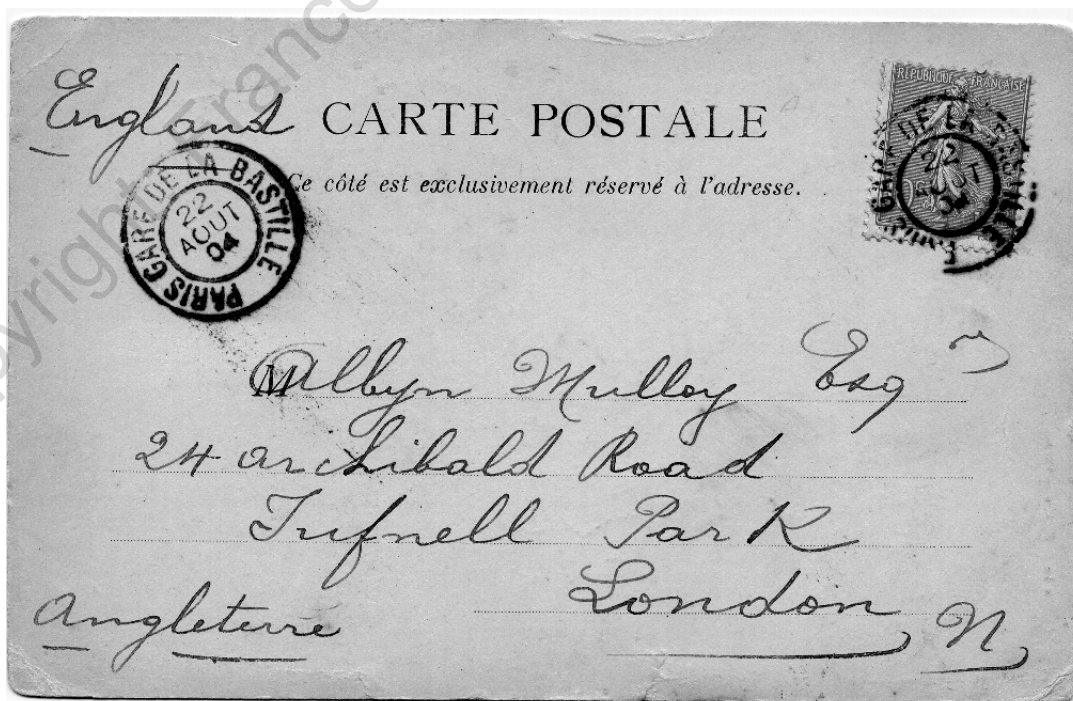 England
CARTE POSTALE
Ce côté est exclusivement réservé à l'adresse.
PARIS GARE DE LA BASTILLE
22
AOUT
04
REPUBLIQUE FRANÇAISE
DE LA
22
AOUT
04
M
Albyn Mulloy Esq
24 archibald Road
Tufnell Park
London N
Angleterre